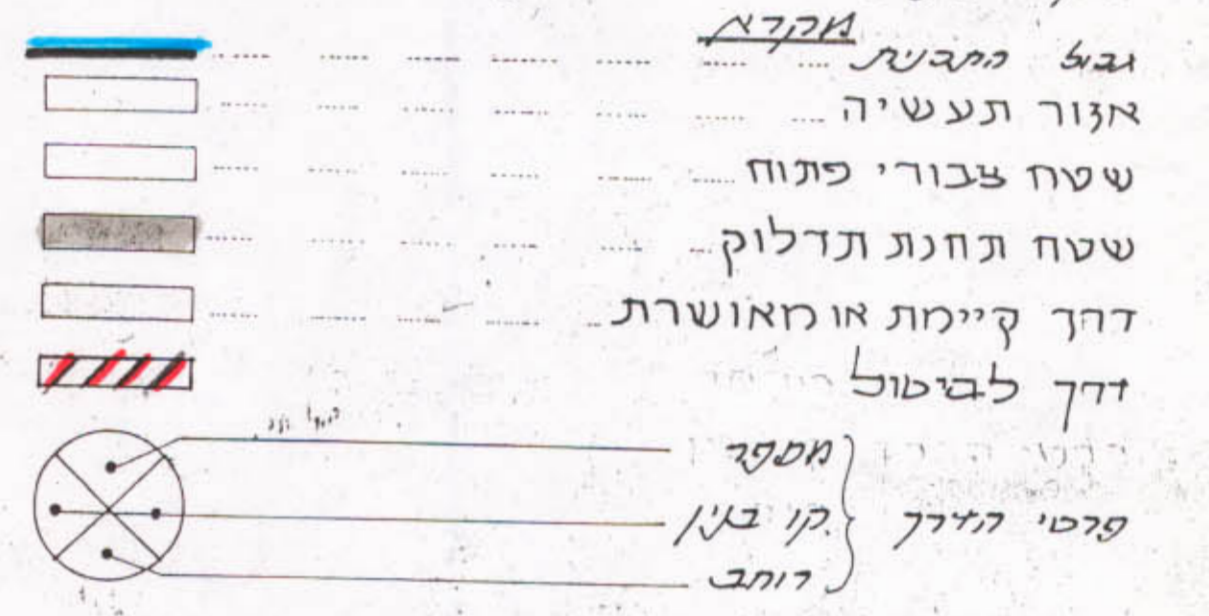 מקרא
גבול התבנית
אזור תעשיה
שטח צבורי פתוח
שטח תחנת תדלוק
דרך קיימת או מאושרת
דרך לביטול
מספר
פרטי הדרך קו בנין
רוחב